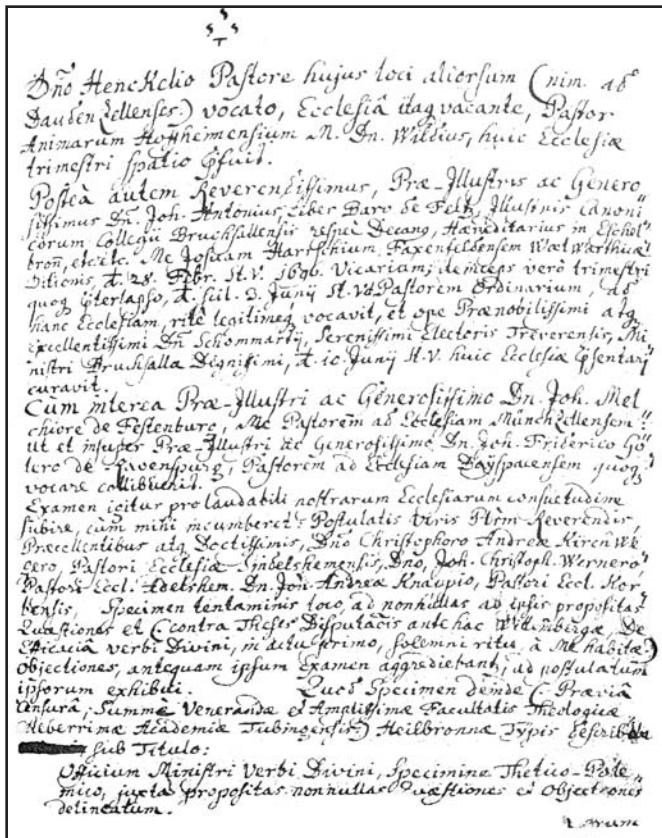 Dño Henckelio Pastore hujus loci aliorsum (nim. ad
Daudenzellenses) vocato, Ecclesiâ itaq vacante, Pastor
Animarum Hoffheimensium M. Dn. Wildius, huic Ecclesiæ
trimestri spatio pfuit.
Posteà autem Reverendissimus, Præ-Illustris ac Genero
sissimus Dn. Joh. Antonius, Liber Baro de Feltz, Illustris Canoni
corum Collegij Bruchsallensis respè Decanq, Hæreditarius in Eschol
bron, etc. etc. Me Josuam Hartschium Faxenfeldensem
Ditionis, d. 28. Febr. St. V. 1690. Vicarium; deinceps verò trimestri
quoq pterlapso, d. scil. 3. Junij St. V. Pastorem Ordinarium, ad
hanc Ecclesiam, ritè legitimeq vocavit, et ope Prænobilissimi atq
excellentissimi Dñ Schommartij, Serenissimi Electoris Treverensis, Mi
nistri Bruchsallæ Dignissimi, d. 10 Junij St. V. huic Ecclesiæ psentari
curavit.
Cùm interea Præ-Illustri ac Generosissimo Dn. Joh. Mel
chiore de Festenburg, Me Pastorem ad Ecclesiam Münchzellensem
ut et insuper Præ-Illustri ac Generosissimo Dn. Joh. Friderico Gö
lero de Ravenspurg, Pastorem ad Ecclesiam Dayspacensem quoq
vocare collibuerit.
Examen igitur pro laudabili nostrarum Ecclesiarum consuetudine
subire, cùm mihi incumberet: Postulatis viris Plrm Reverendis,
Præcellentibus atq Doctissimis, Dño Christophoro Andreâ Kirchwe
gero, Pastori Ecclesiæ Indelshemensis, Dno, Joh. Christoph. Wernero
Pastori Eccl. Adelshem. Dn. Joh. Andreâ Knaupio, Pastori Eccl. Kor
bensis, Specimen tentaminis loco, ad nonnullas ab ipsis propositas
Quæstiones et (contra Theses Disputaõis antehac Wittenbergæ, De
Efficaciâ verbi Divini, in actu primo, solemni ritu, à Me habitæ)
objectiones, antequam ipsum Examen aggrediebant, ad postulatum
ipsorum exhibui. Quod Specimen deinde (Præviâ
Censurâ, Summè Venerandæ et Amplissimæ Facultatis Theologicæ
Celeberrimæ Academiæ Tubingensis) Heilbronnæ Typis
sub Titulo:
Officium Ministri Verbi Divini, Specimine Thetico-Pole
mico, juxta propositas nonnullas Quæstiones et Objectiones
delineatum.